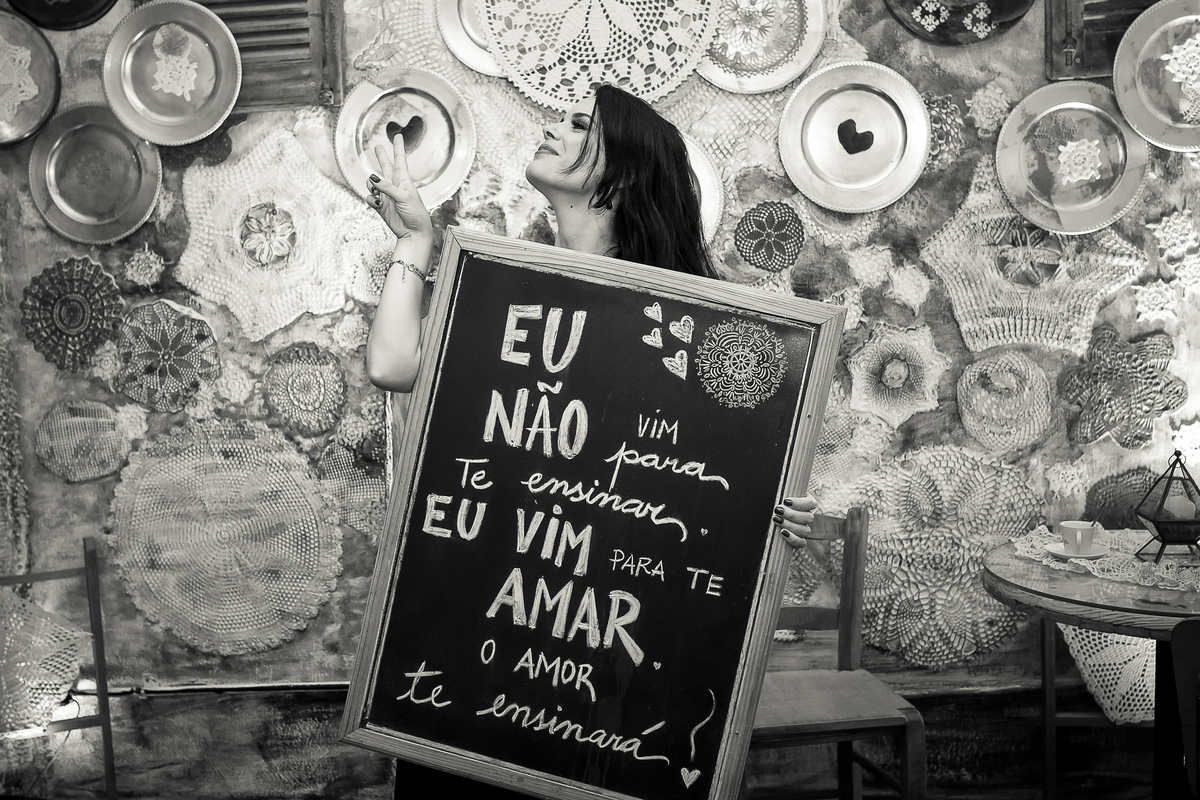 EU
NÃO VIM para
Te ensinar.
EU VIM PARA TE
AMAR.
O AMOR
te ensinará!